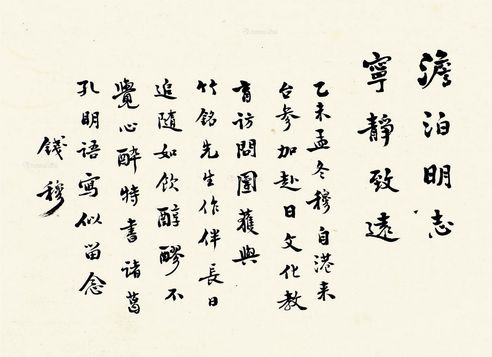 澹泊明志
寧靜致遠
乙未孟冬穆自港来
台參加赴日文化教
育訪問團獲與
竹銘先生作伴長日
追隨如飲醇醪不
覺心醉特書諸葛
孔明語寫似留念
錢穆